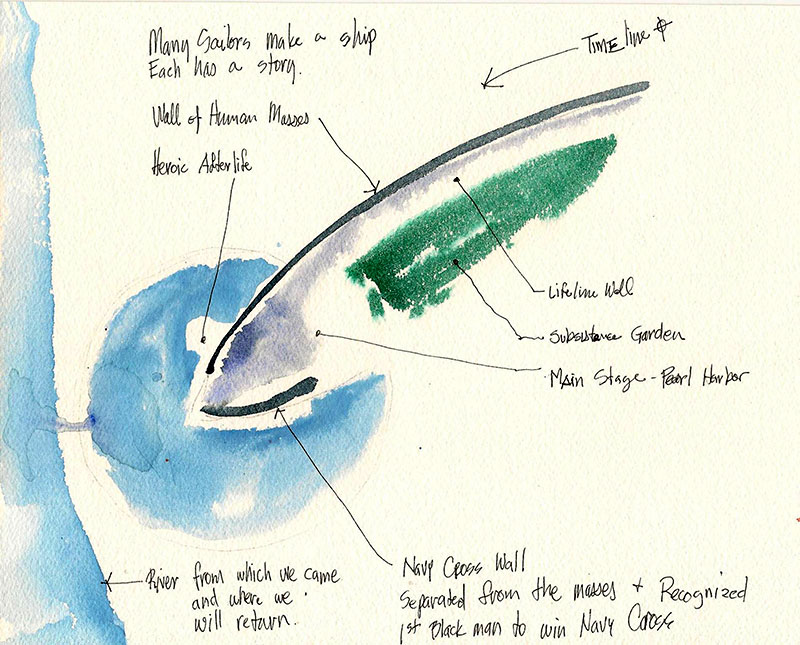 Many Sailors make a ship
Each has a story.
TIMEline
Wall of Human Masses
Heroic Afterlife
Lifeline Wall
Subsistence Garden
Main Stage - Pearl Harbor
River from which we came
and where we
will return.
Navy Cross Wall
Separated from the masses + Recognized
1st Black man to win Navy Cross